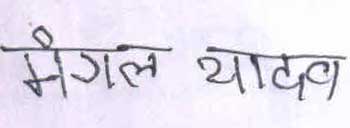 मंगल यादव